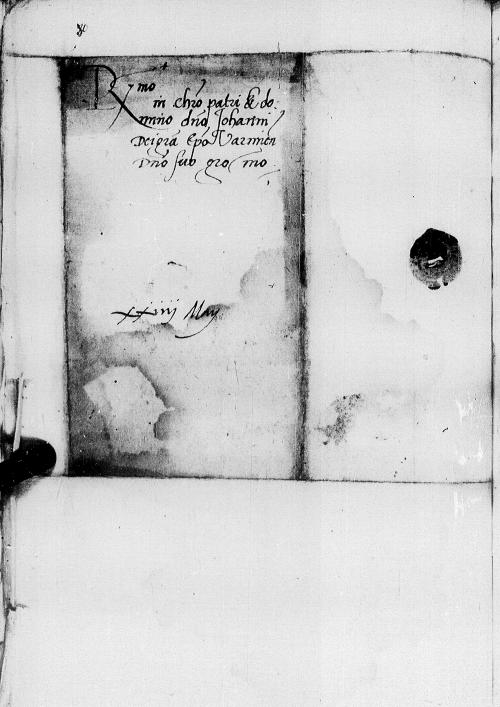 Rmo
in chro patri & do
mino dno Johanni
Dei gra Epo Varmien
Dno sub gro mo
xxiiij May